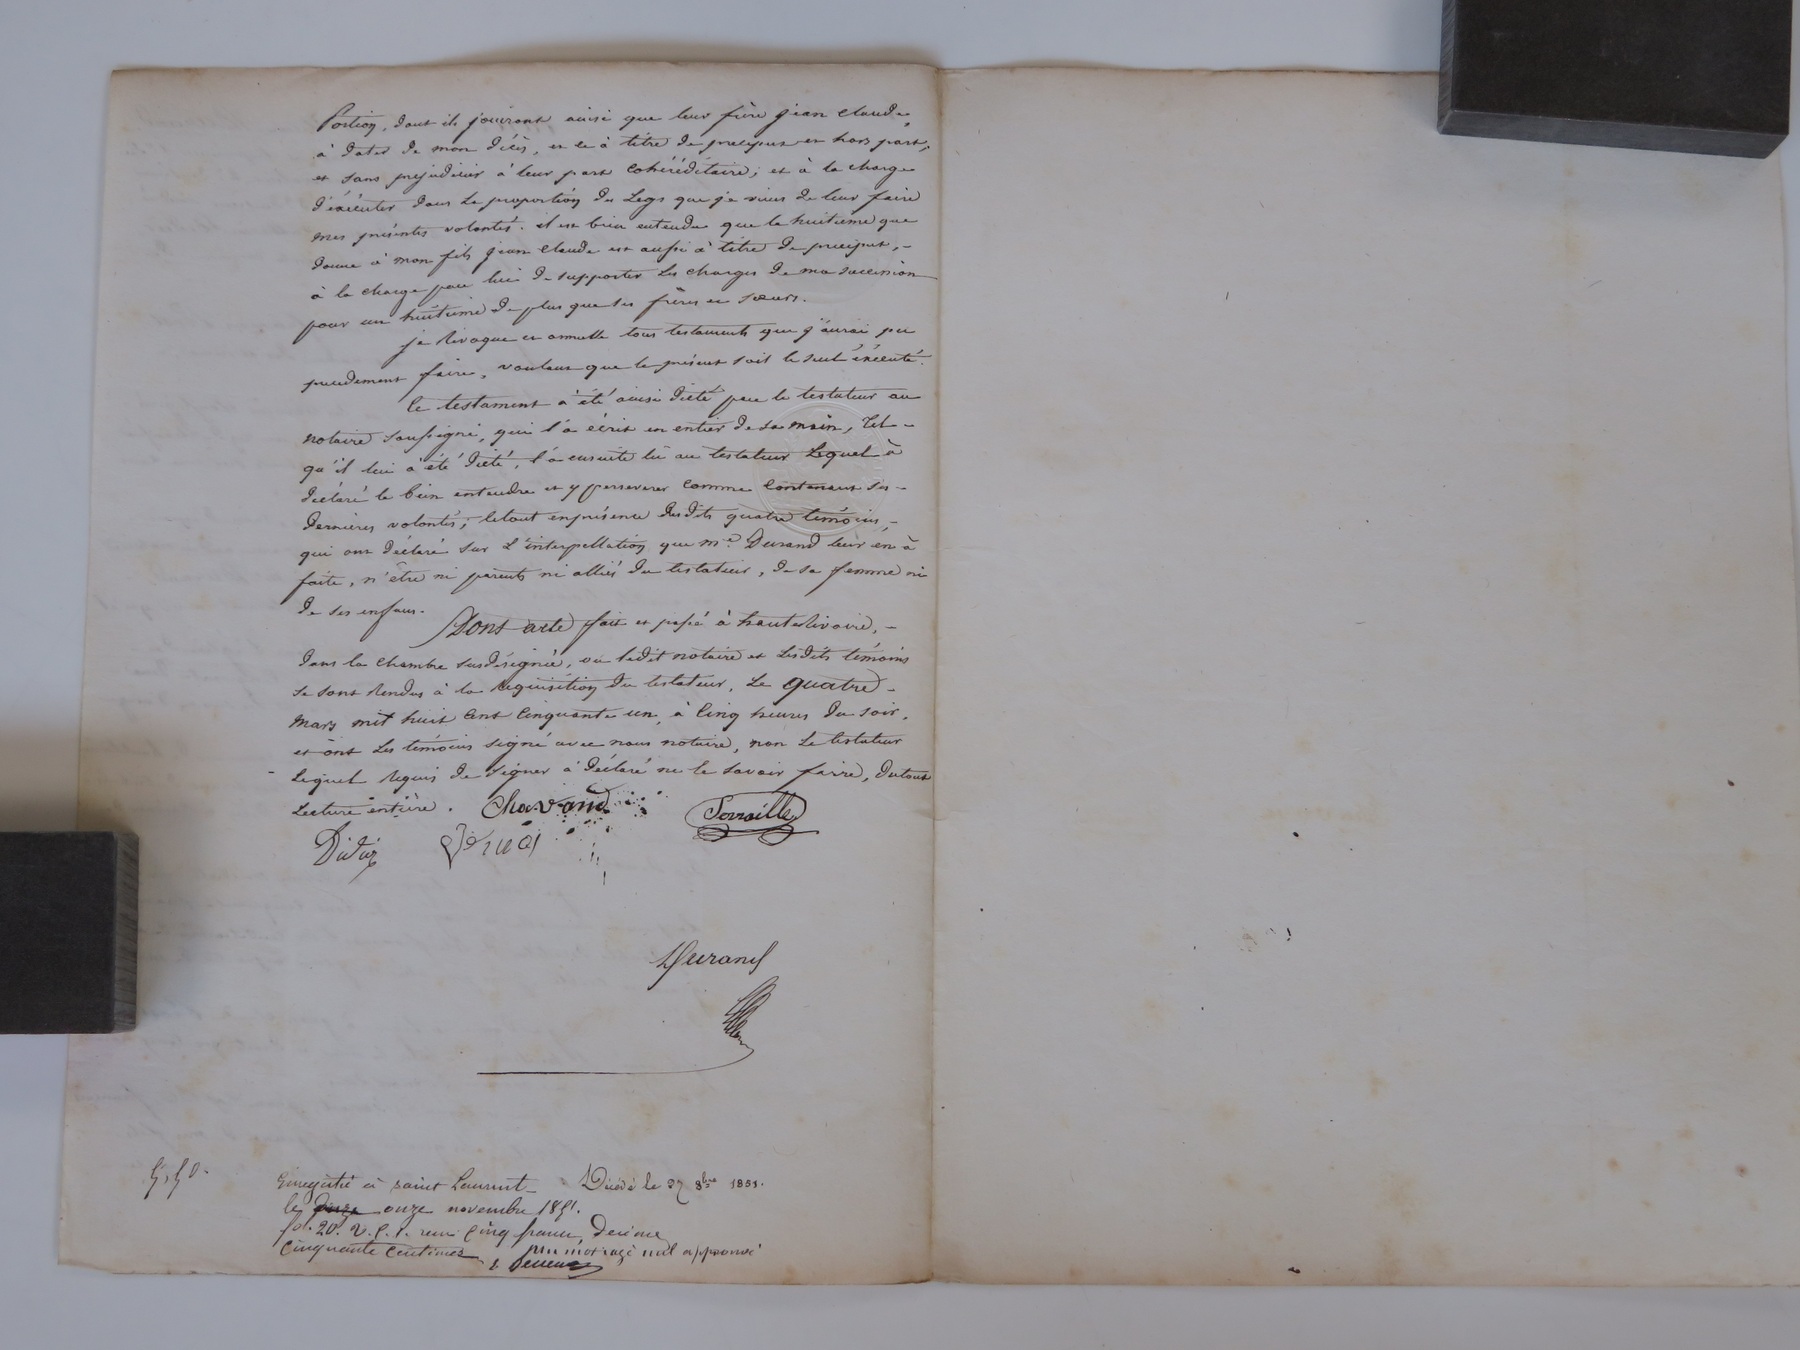 Portion, dont ils jouiront ainsi que leur frère jean claude,
à dater de mon décès, et ce à titre de preciput et hors part,
et sans prejudicier à leur part cohéréditaire; et à la charge
d'éxécuter dans la proportion du Legs que je viens de leur faire
mes présentes volontés. il est bien entendu que le huitieme que
donne à mon fils jean claude est aussi à titre de preciput,
à la charge par lui de supporter les charges de ma succession
pour un huitieme de plus que ses frères et sœurs.
je Révoque et annulle tous testaments que j'aurai pu
precedement faire, voulant que le présent soit le seul éxécuté.
Ce testament a été ainsi dicté par le testateur au
notaire soussigné, qui l'a écrit en entier de sa main, tel
qu'il lui a été dicté, l'a ensuite lu au testateur Lequel à
déclaré le bien entendre et y perseverer comme Contenant ses
dernieres volontés; le tout en présence desdits quatre témoins,
qui ont déclaré sur L'interpellation que Me Durand leur en à
faite, n'être ni parents ni alliés du testateur, de sa femme ni
de ses enfans.
Dont acte fait et passé à hauterivoire,
dans la chambre susdésignée, où ledit notaire et Lesdits témoins
se sont Rendus à la Réquisition du testateur, Le quatre
Mars mil huit Cent Cinquante un, à Cinq heures du soir,
et ont Les témoins signé avec nous notaire, non Le testateur
Lequel Requis de signer à déclaré ne le savoir faire, du tout
Lecture entière.
Chavand
Durand
Enregistré à saint Laurent
Décédé le 27 8bre 1851.
le onze novembre 1851.
fol. 20. v. c. 1. reçu Cinq francs, decime
Cinquante Centimes
un mot rayé nul approuvé
5,50